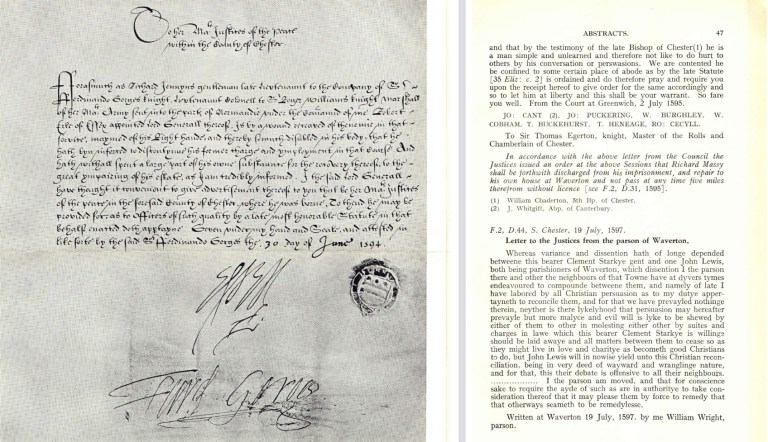 To her Ma:ties Justices of the Peace
within the County of Chester
Forasmuch as Richard Jennyns gentleman late lieutenant to the Company of Sr
Ferdinando Gorges knight, lieutenant Coronell to Sr Roger Williams knight marshall
of her Ma:ties Army sent into the parts of Normandie under the Comand of me Robert
Erle of Essex appointed lord Generall thereof. Is by a wound receaved of thenimie in that
service, maymed of his Right hande, and therby disabled in his body, that he
hath byn inforced to discontinue his former charge and ymployment in that Course. And
hath withall spent a large part of his owne substaunce for the recovery thereof, to the
great ympairing of his estate, as I am credibly informed. I the said lord Generall
have thought it convenient to give advertisement thereof to you that be her Ma:ties Justices
of the peace in the foresaid County of Chester, where he was borne, To thend he may be
provided for as to Officers of such quality by a late most honorable Statute in that
behalf enacted doth apptayne. Geven under my hand and Seale, and attested in
like sorte by the said Sr Ferdinando Gorges the 30 day of June 1594.
Essex
Ferd: Gorges
ABSTRACTS. 47
and that by the testimony of the late Bishop of Chester(1) he is
a man simple and unlearned and therefore not like to do hurt to
others by his conversation or perswasions. We are contented he
be confined to some certain place of abode as by the late Statute
[35 Eliz: c. 2] is ordained and do therefore pray and require you
upon the receipt hereof to give order for the same accordingly and
so to let him at liberty and this shall be your warrant. So fare
you well. From the Court at Greenwich, 2 July 1595.
JO: CANT (2), JO: PUCKERING, W. BURGHLEY, W.
COBHAM. T. BUCKEHURST. T. HENEAGE, RO: CECYLL.
To Sir Thomas Egerton, knight, Master of the Rolls and
Chamberlain of Chester.
In accordance with the above letter from the Council the
Justices issued an order at the above Sessions that Richard Massy
shall be forthwith discharged from his imprisonment, and repair to
his own house at Waverton and not pass at any time five miles
therefrom without licence [see F.2, D.31, 1595].
(1) William Chaderton, 8th Bp. of Chester.
(2) J. Whitgift, Abp. of Canterbury.
F.2, D.44, S. Chester, 19 July, 1597.
Letter to the Justices from the parson of Waverton,
Whereas variance and dissention hath of longe depended
betweene this bearer Clement Starkye gent and one John Lewis,
both being parishioners of Waverton, which dissention I the parson
there and other the neighbours of that Towne have at dyvers tymes
endeavoured to compounde betweene them, and namely of late I
have labored by all Christian persuasion as to my dutye apper-
tayneth to reconcile them, and for that we have prevayled nothinge
therein, neyther is there lykelyhood that persuasion may hereafter
prevayle but more malyce and evill will is lyke to be shewed by
either of them to other in molesting either other by suites and
charges in lawe which this bearer Clement Starkye is willinge
should be laid awaye and all matters between them to cease so as
they might live in love and charitye as becometh good Christians
to do, but John Lewis will in nowise yield unto this Christian recon-
ciliation, being in very deed of wayward and wranglinge nature,
and for that, this their debate is offensive to all their neighbours.
.................. I the parson am moved, and that for conscience
sake to require the ayde of such as are in authoritye to take con-
sideration thereof that it may please them by force to remedy that
that otherways seameth to be remedylesse.
Written at Waverton 19 July, 1597. by me William Wright,
parson.